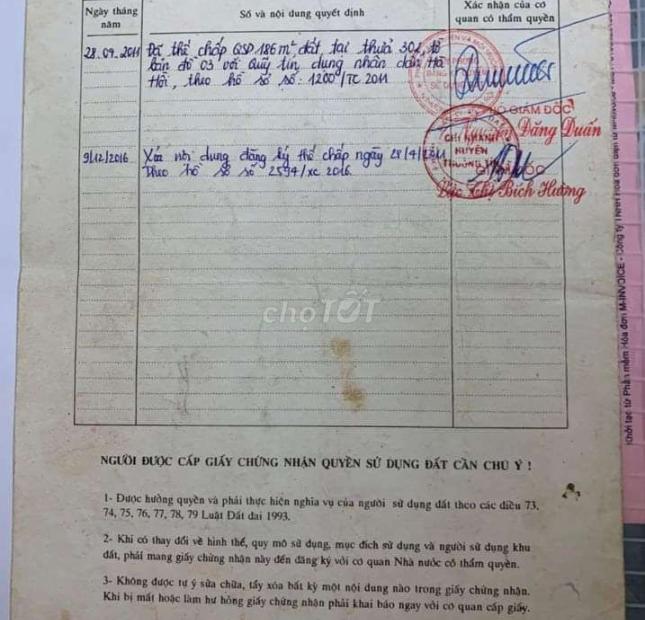 Ngày tháng năm
Số và nội dung quyết định
Xác nhận của cơ quan có thẩm quyền
28.09.2011
Đã thế chấp QSD 186m² đất tại thửa 302, tờ
bản đồ 03 với Quỹ tín dụng nhân dân Hà
Hồi, theo hồ sơ số: 1200/TC 2011
GIÁM ĐỐC
Đăng Duẩn
9/12/2016
Xóa nội dung đăng ký thế chấp ngày 28/9/2011
theo hồ sơ số 2594/XC 2016.
CHI NHÁNH
HUYỆN
THƯỜNG TÍN
Thị Bích Hường
choTỐT
NGƯỜI ĐƯỢC CẤP GIẤY CHỨNG NHẬN QUYỀN SỬ DỤNG ĐẤT CẦN CHÚ Ý !
1- Được hưởng quyền và phải thực hiện nghĩa vụ của người sử dụng đất theo các điều 73,
74, 75, 76, 77, 78, 79 Luật Đất đai 1993.
2- Khi có thay đổi về hình thể, quy mô sử dụng, mục đích sử dụng và người sử dụng khu
đất, phải mang giấy chứng nhận này đến đăng ký với cơ quan Nhà nước có thẩm quyền.
3- Không được tự ý sửa chữa, tẩy xóa bất kỳ một nội dung nào trong giấy chứng nhận.
Khi bị mất hoặc làm hư hỏng giấy chứng nhận phải khai báo ngay với cơ quan cấp giấy.
Khởi tạo từ Phần mềm Hóa đơn M-INVOICE - Công ty TNHH Hóa đơn điện tử